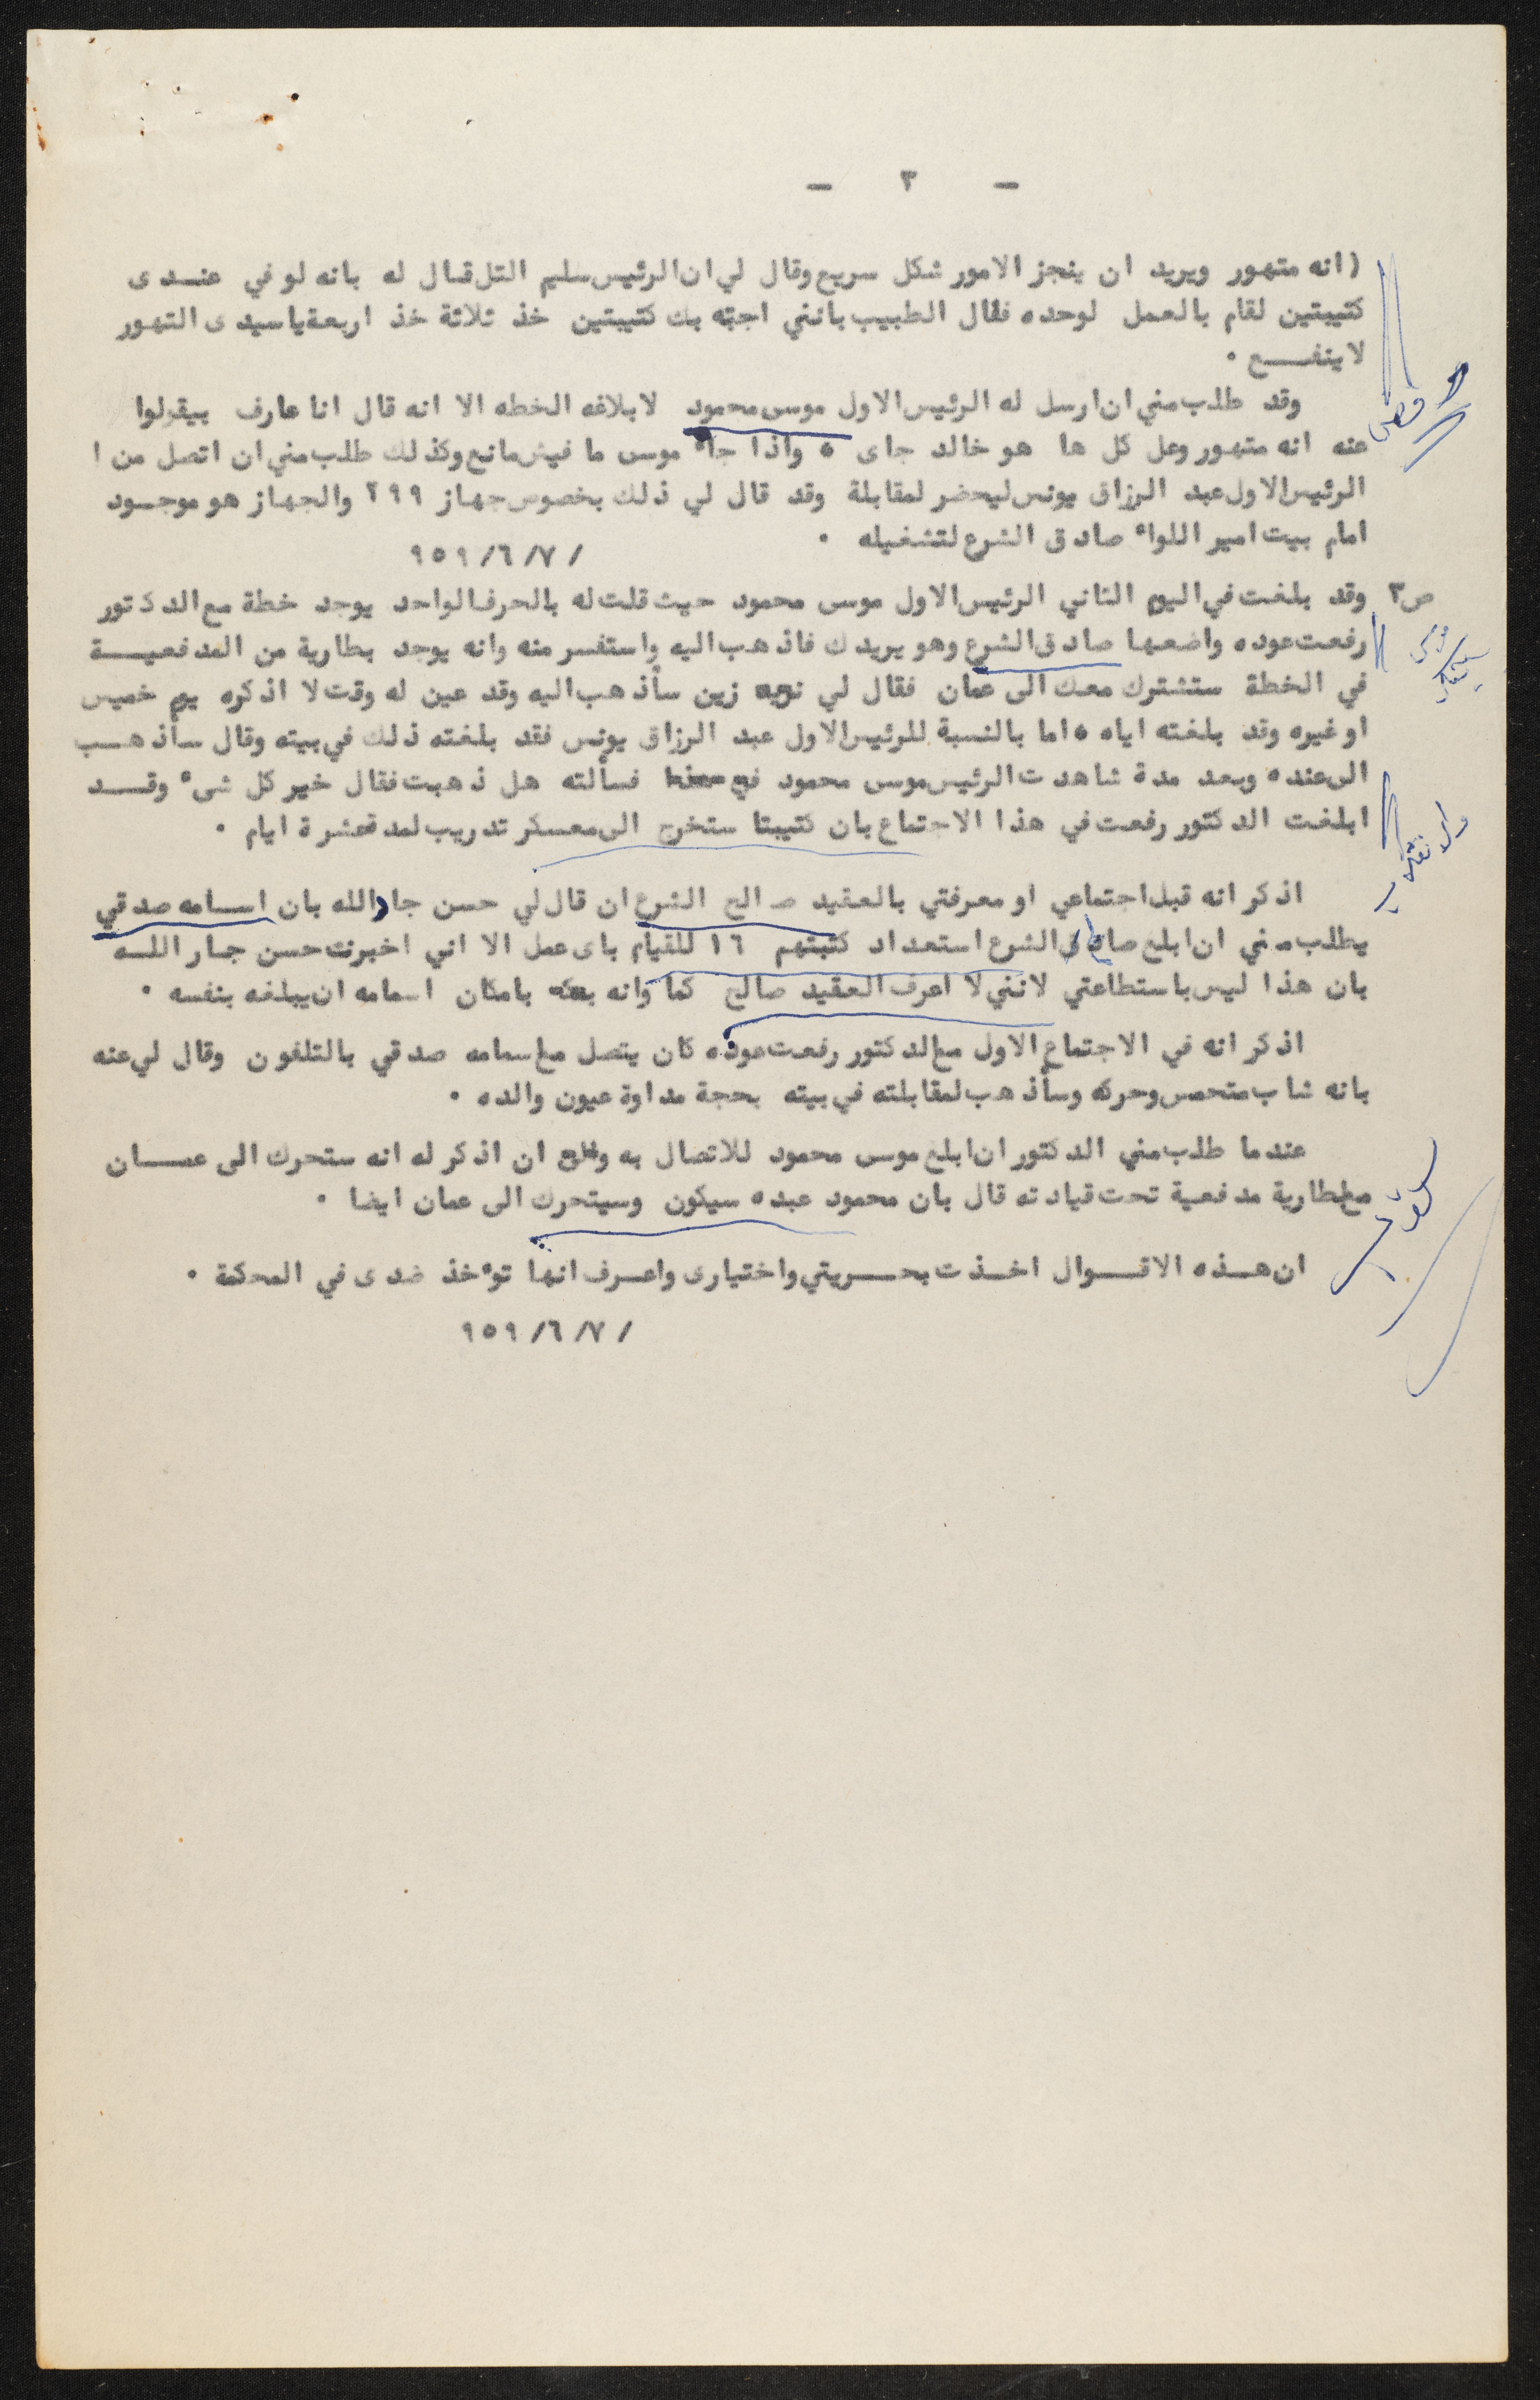 — ٣ —
( انه متهور ويريد ان ينجز الامور شكل سريع وقال لي ان الرئيس سليم التل قال له بانه لو في عندى
كتيبتين لقام بالعمل لوحده فقال الطبيب بانني اجبته بك كتيبتين خذ ثلاثة خذ اربعة ياسيدى التهور
لا ينفع ٠
وقد طلب مني ان ارسل له الرئيس الاول موسى محمود لابلاغه الخطه الا انه قال انا عارف بيقولوا
عنه انه متهور وعل كل ها هو خالد جاى ٥ واذا جاء موسى ما فيش مانع وكذلك طلب مني ان اتصل من ا
الرئيس الاول عبد الرزاق يونس ليحضر لمقابلة وقد قال لي ذلك بخصوص جهاز ٢٩٩ والجهاز هو موجود
امام بيت امير اللواء صادق الشرع لتشغيله ٠
٩٥٩/٦/٧/
ص٣ وقد بلغت في اليوم الثاني الرئيس الاول موسى محمود حيث قلت له بالحرف الواحد يوجد خطة مع الدكتور
رفعت عوده واضعها صادق الشرع وهو يريدك فاذهب اليه واستفسر منه وانه يوجد بطارية من المدفعية
في الخطة ستشترك معك الى عمان فقال لي زين سأذهب اليه وقد عين له وقت لا اذكره يوم خميس
او غيره وقد بلغته اياه ٥ اما بالنسبة للرئيس الاول عبد الرزاق يونس فقد بلغته ذلك في بيته وقال سأذهب
الى عنده وبعد مدة شاهدت الرئيس موسى محمود فسألته هل ذهبت فقال خير كل شىء وقد
ابلغت الدكتور رفعت في هذا الاجتماع بان كتيبتا ستخرج الى معسكر تدريب لمدة عشرة ايام ٠
اذكر انه قبل اجتماعي او معرفتي بالعقيد صالح الشرع ان قال لي حسن جار الله بان اسامه صدقي
يطلب مني ان ابلغ صالح الشرع استعداد كتبتهم ١٦ للقيام باى عمل الا اني اخبرنت حسن جار الله
بان هذا ليس باستطاعتي لانني لا اعرف العقيد صالح كما وانه بامكان اسمامه ان يبلغه بنفسه ٠
اذكر انه في الاجتماع الاول مع الدكتور رفعت عوده كان يتصل مع اسمامه صدقي بالتلفون وقال لي عنه
بانه شاب متحمس وحركه وسأذهب لمقابلته في بيته بحجة مداوة عيون والده ٠
عندما طلب مني الدكتور ان ابلغ موسى محمود للاتصال به ان اذكر له انه ستحرك الى عمان
مع بطارية مدفعية تحت قيادته قال بان محمود عبده سيكون وسيتحرك الى عمان ايضا ٠
ان هذه الاقوال اخذت بحريتي واختيارى واعرف انها تؤخذ ضدى في المحكمة ٠
٩٥٩/٦/٧/